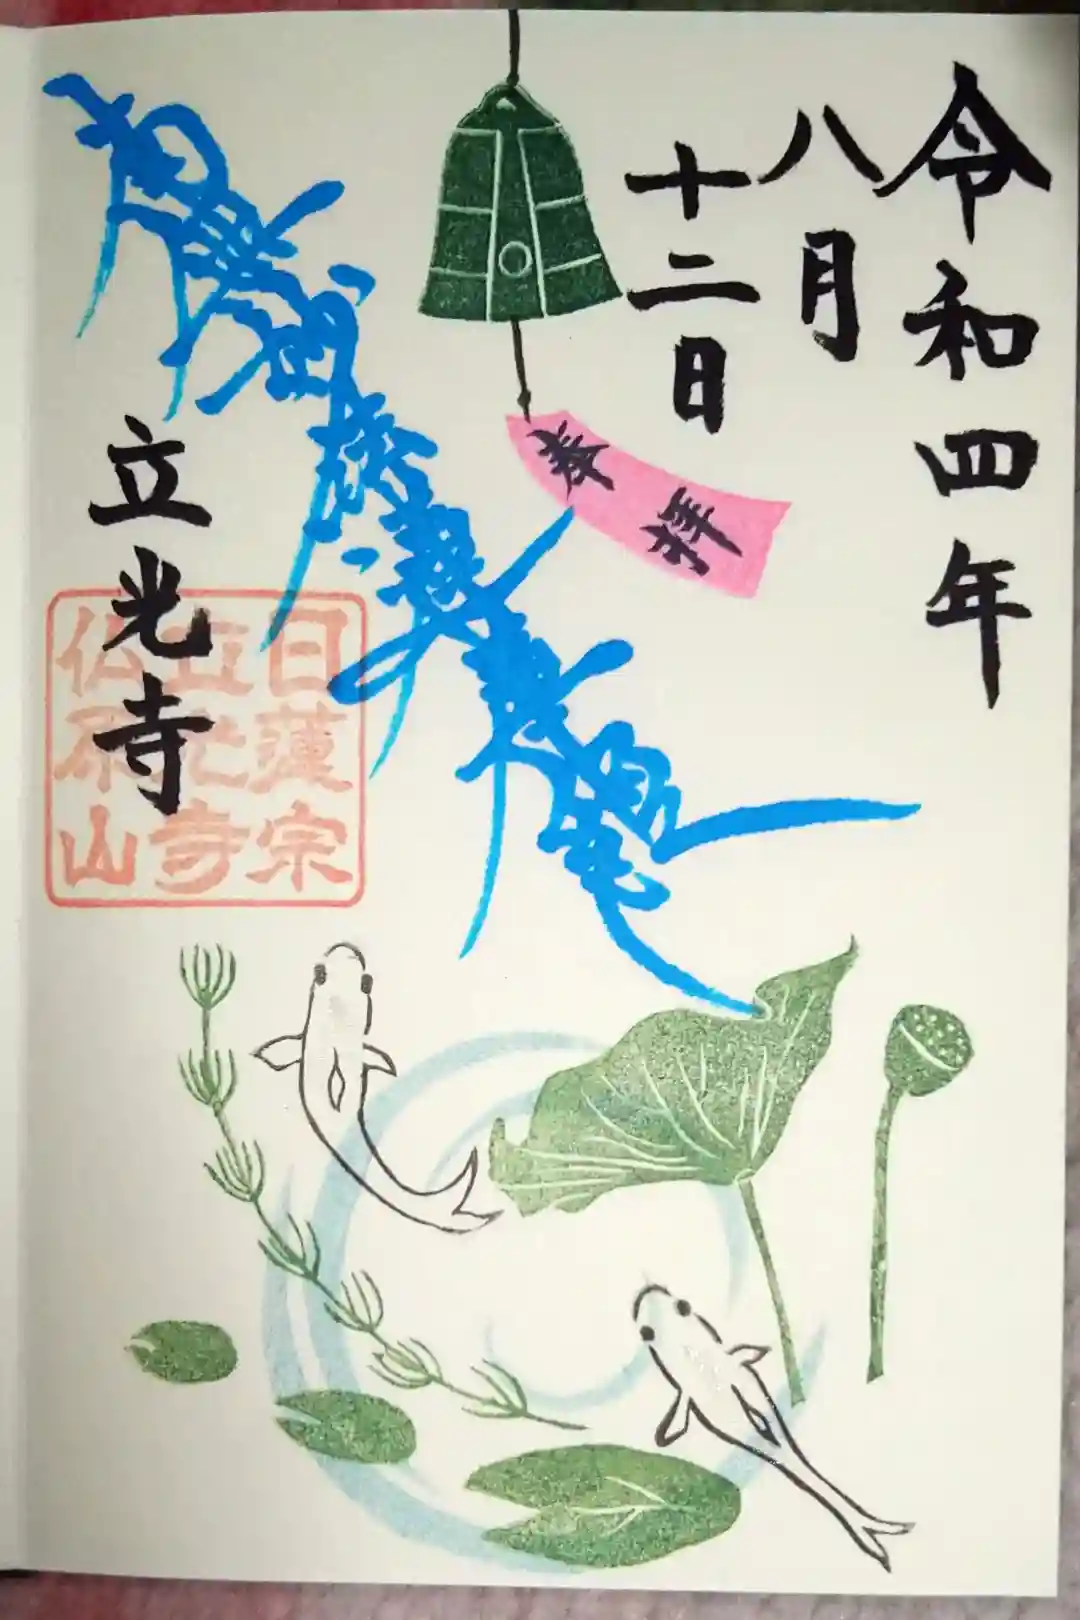 令和四年
八月
十二日
奉拝
南無妙法蓮華経
立光寺
日蓮宗
立光寺